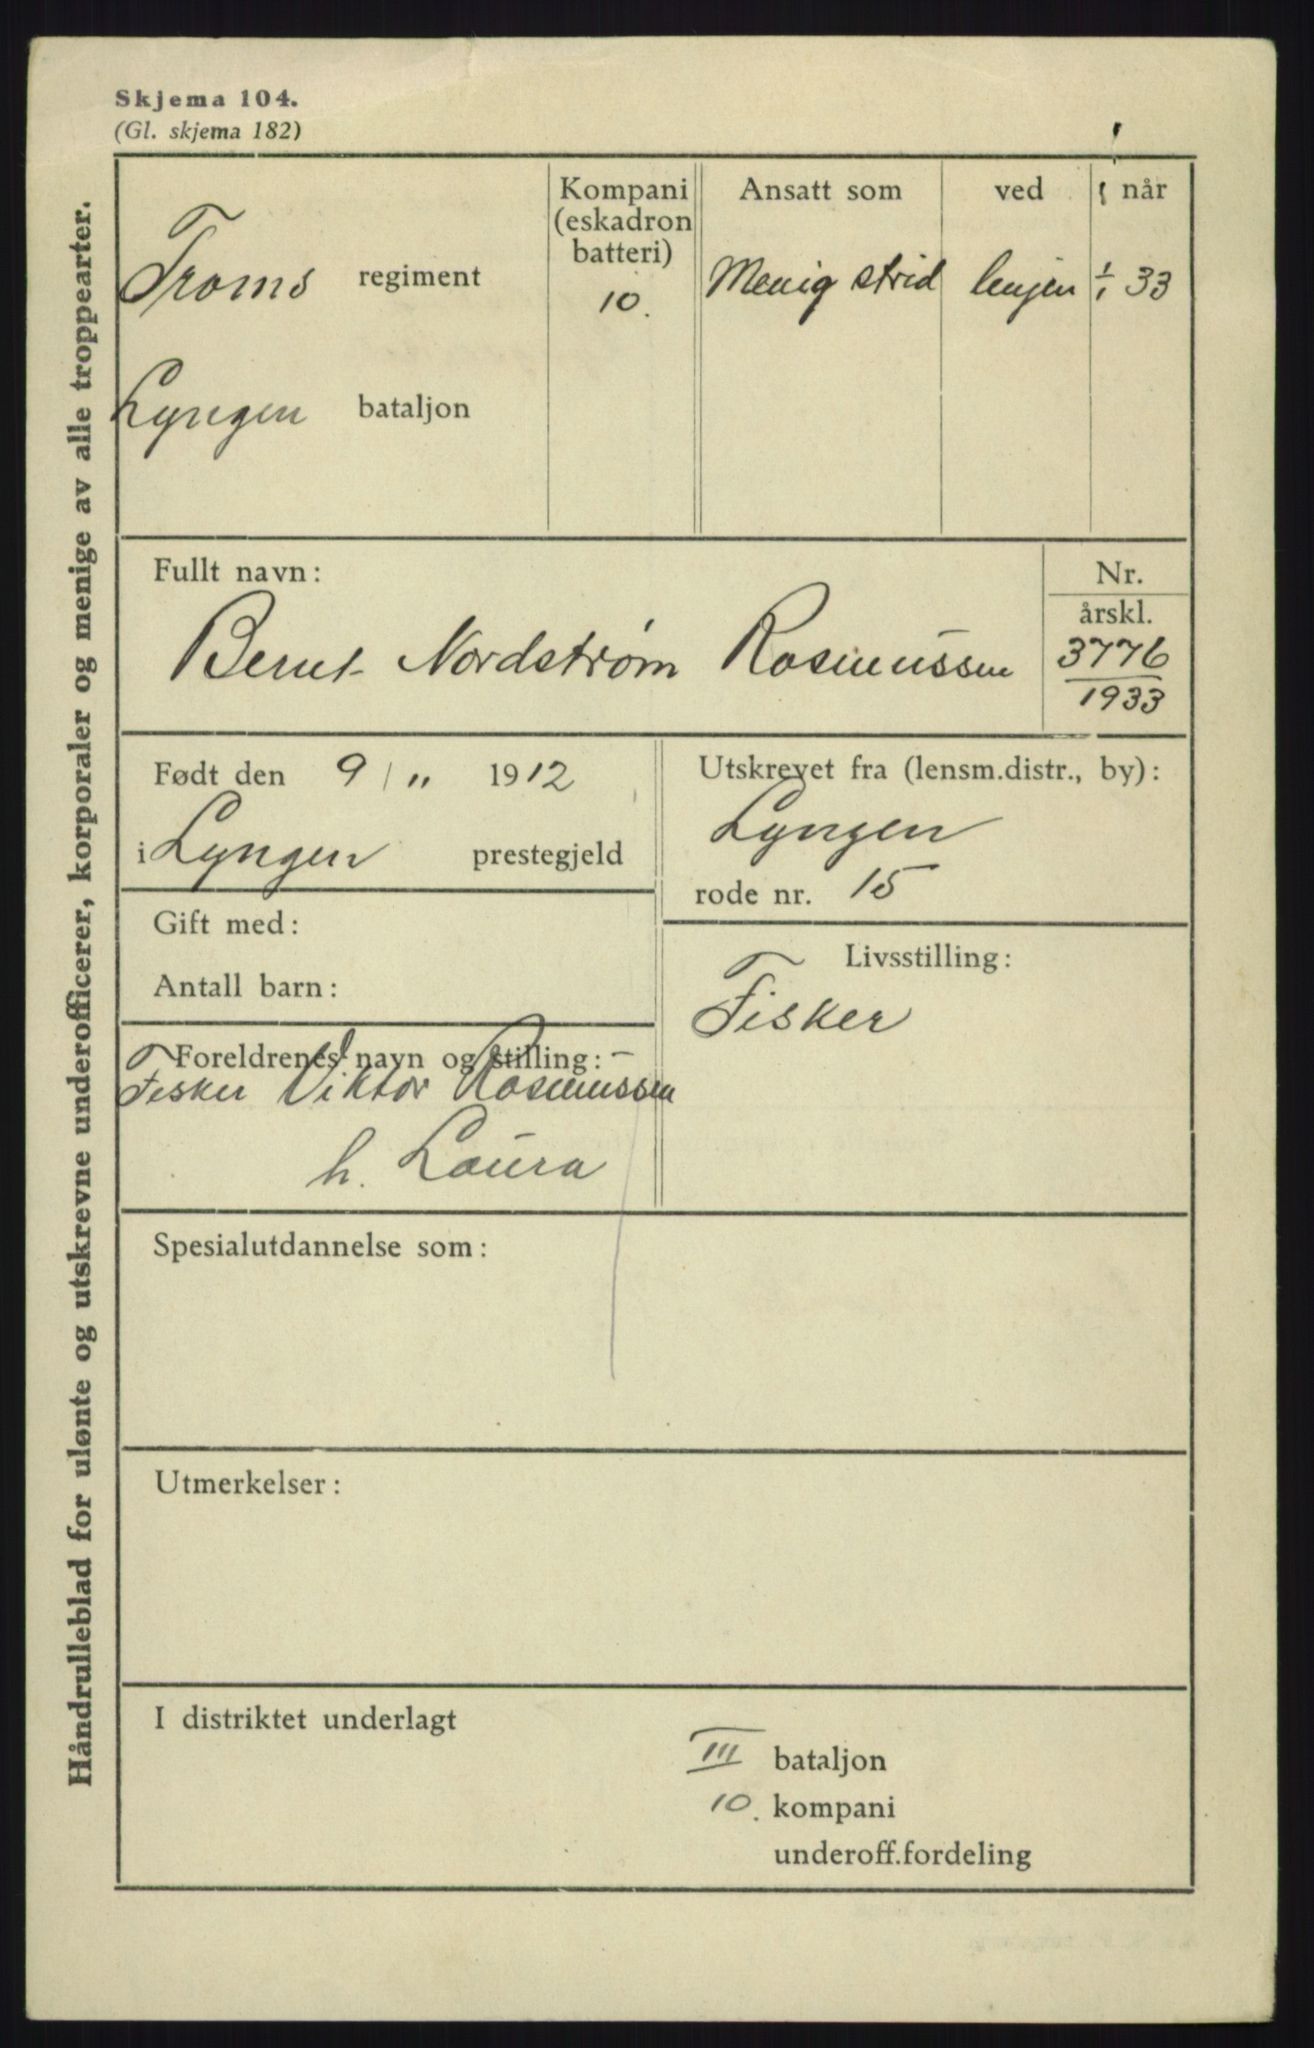 Skjema 104.
(Gl. skjema 182)
Håndrulleblad for ulønte og utskrevne underofficerer, korporaler og menige av alle troppearter.
Troms regiment
Lyngen bataljon
Kompani
(eskadron
batteri)
10.
Ansatt som ved når
Menig strid linjen 1/1 33
Fullt navn:
Bernt Nordstrøm Rasmussen
Nr.
årskl.
3776
1933
Født den 9 / 11 1912
i Lyngen prestegjeld
Utskrevet fra (lensm.distr., by):
Lyngen
rode nr. 15
Gift med:
Antall barn:
Livsstilling:
Fisker
Foreldrenes navn og stilling:
Fisker Viktor Rasmussen
h. Laura
Spesialutdannelse som:
Utmerkelser:
I distriktet underlagt
III bataljon
10. kompani
underoff.fordeling